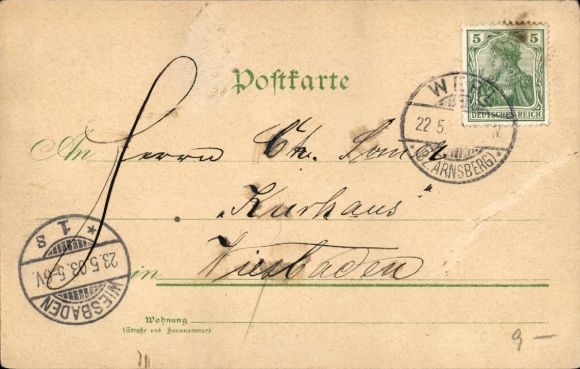 5 5
DEUTSCHES REICH
Postkarte
22 5
(BZ. ARNSBERG)
An Herrn Ch.
"Kurhaus"
in Wiesbaden
WIESBADEN
23.5.03.5-6V.
* 1 s
Wohnung
(Straße und Hausnummer)
9 —